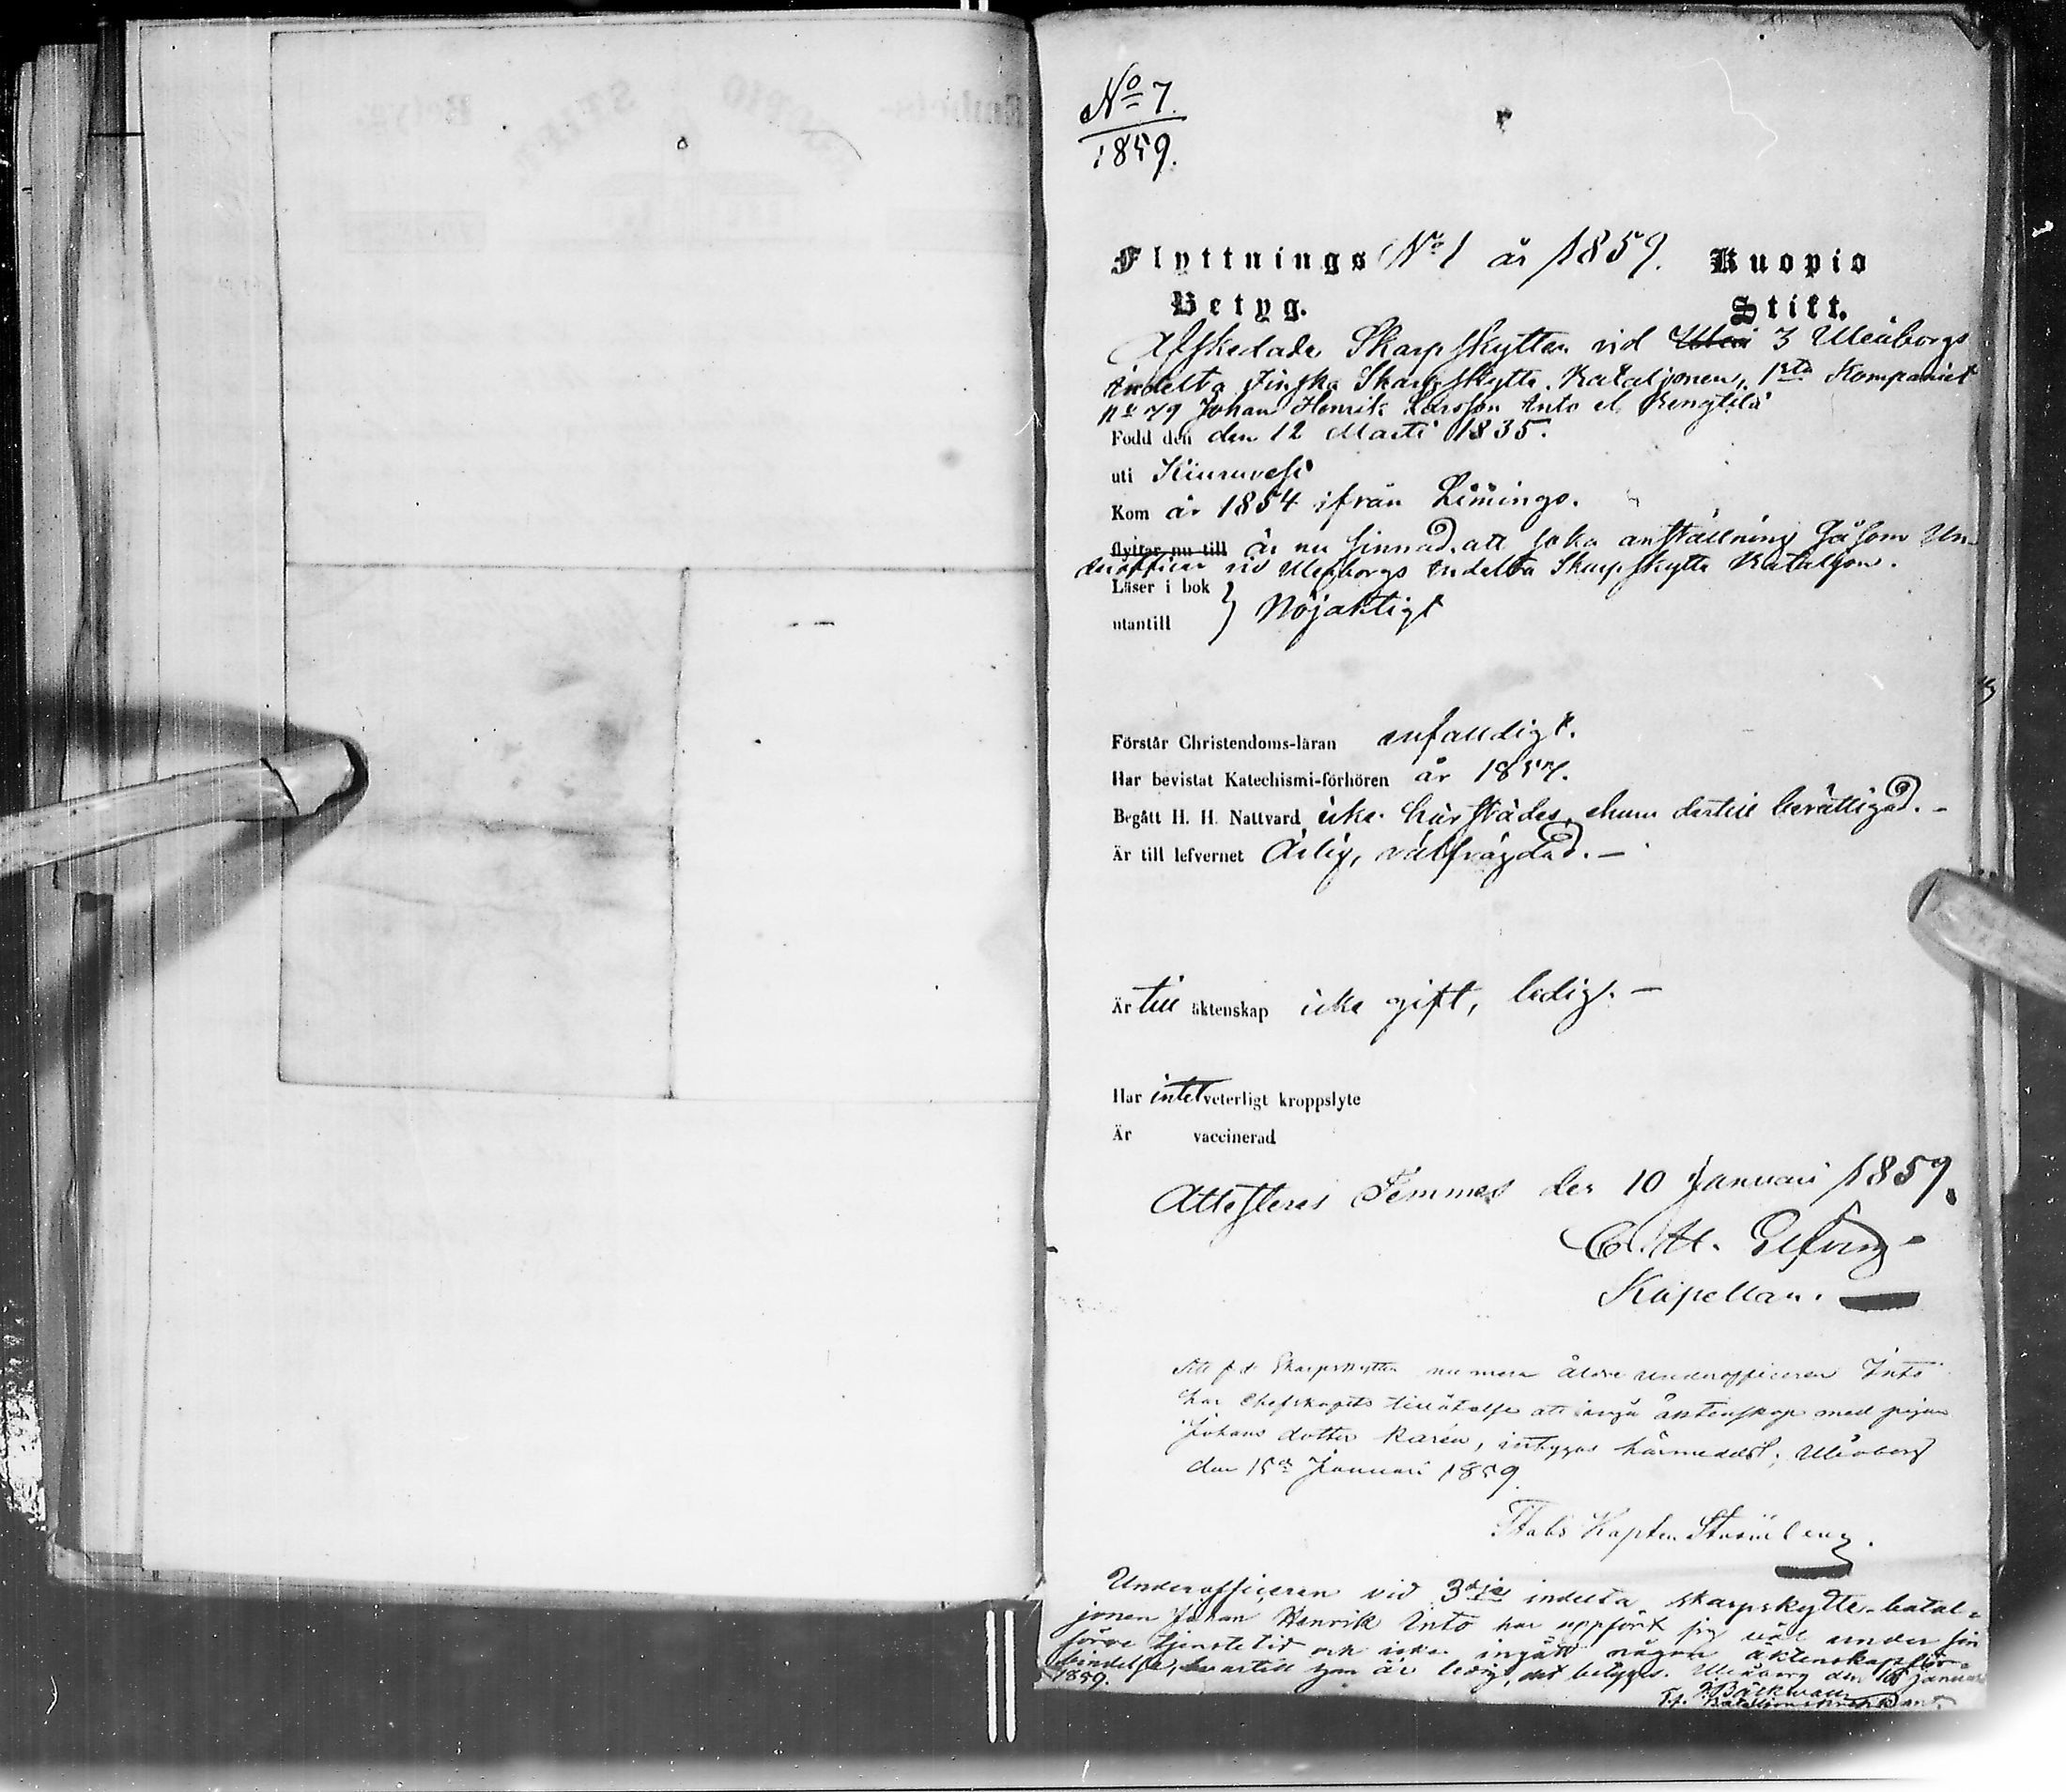 No 7.
1859.
Flyttnings No 1 år 1859. Kuopio
Betyg. Stift.
Afskedade Skarpskytten vid 3 Uleåborgs
indelta Finska Skarpskytte Bataljonen, 1sta Kompaniet
No 79 Johan Henrik Larsson Into el. Rengtilä
Född den den 12 Marti 1835.
uti Kiuruvesi
Kom år 1854 ifrån Limingo.
flyttar nu till är nu sinnad, att söka anställning såsom Un-
derofficer vid Uleåborgs Indelta Skarpskytte Bataljon.
Läser i bok
utantill } Nöjaktigt
Förstår Christendoms-läran enfaldigt.
Har bevistat Katechismi-förhören år 1857.
Begått H. H. Nattvard icke härstädes, ehuru dertill berättigad. -
Är till lefvernet Ärlig, välfrägdad. -
Är till äktenskap icke gift, ledig. -
Har intet veterligt kroppslyte
Är vaccinerad
Attesteras Temmes den 10 Januari 1859.
C. H. Elfving
Kapellan.
Att f. d. Skarpskytten numera äldre underofficeren Into
har Chefskapets tillåtelse att ingå äktenskap med pigan
Johans dotter Karén, intygas härmedelst; Uleåborg
den 15de Januari 1859.
Stabs Kapten
Underofficeren vid 3dje indelta skarpskytte-batal-
jonen Johan Henrik Into har uppfört sig väl under sin
förra tjenstetid och icke ingått någon äktenskapsför-
bindelse, hvartill han är ledig, det betygas. Uleåborg den 16 Januari
1859.
Bäckman